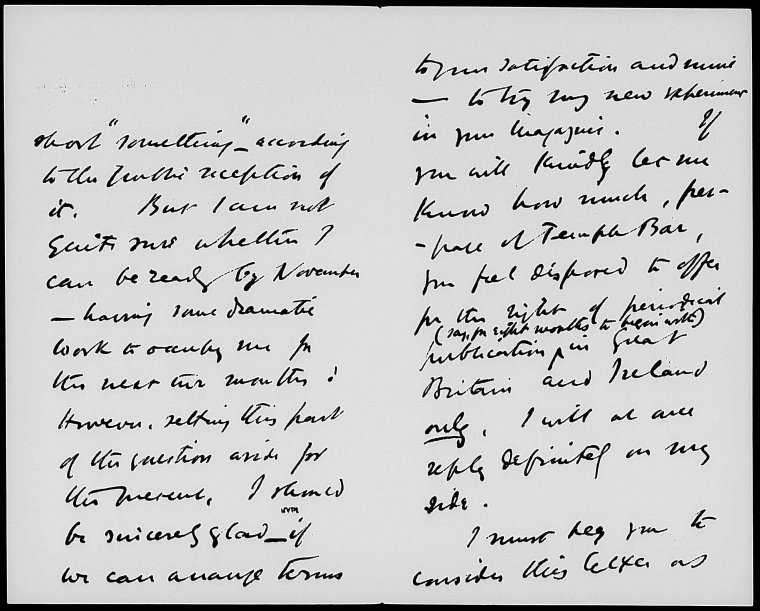 short "something" – according
to the public reception of
it. But I am not
quite sure whether I
can be ready by November
– having some dramatic
work to occupy me for
the next two months :
However, setting this part
of the question aside for
the present, I should
be sincerely glad – if
we can arrange terms
to your satisfaction and mine
– to try my new experiment
in your Magazine. If
you will kindly let me
know how much, per-
-page of Temple Bar,
you feel disposed to offer
for the right of periodical
(say, for eight months to begin with)
publication, in Great
Britain and Ireland
only, I will at once
reply definitely on my
side.
I must beg you to
consider this letter as